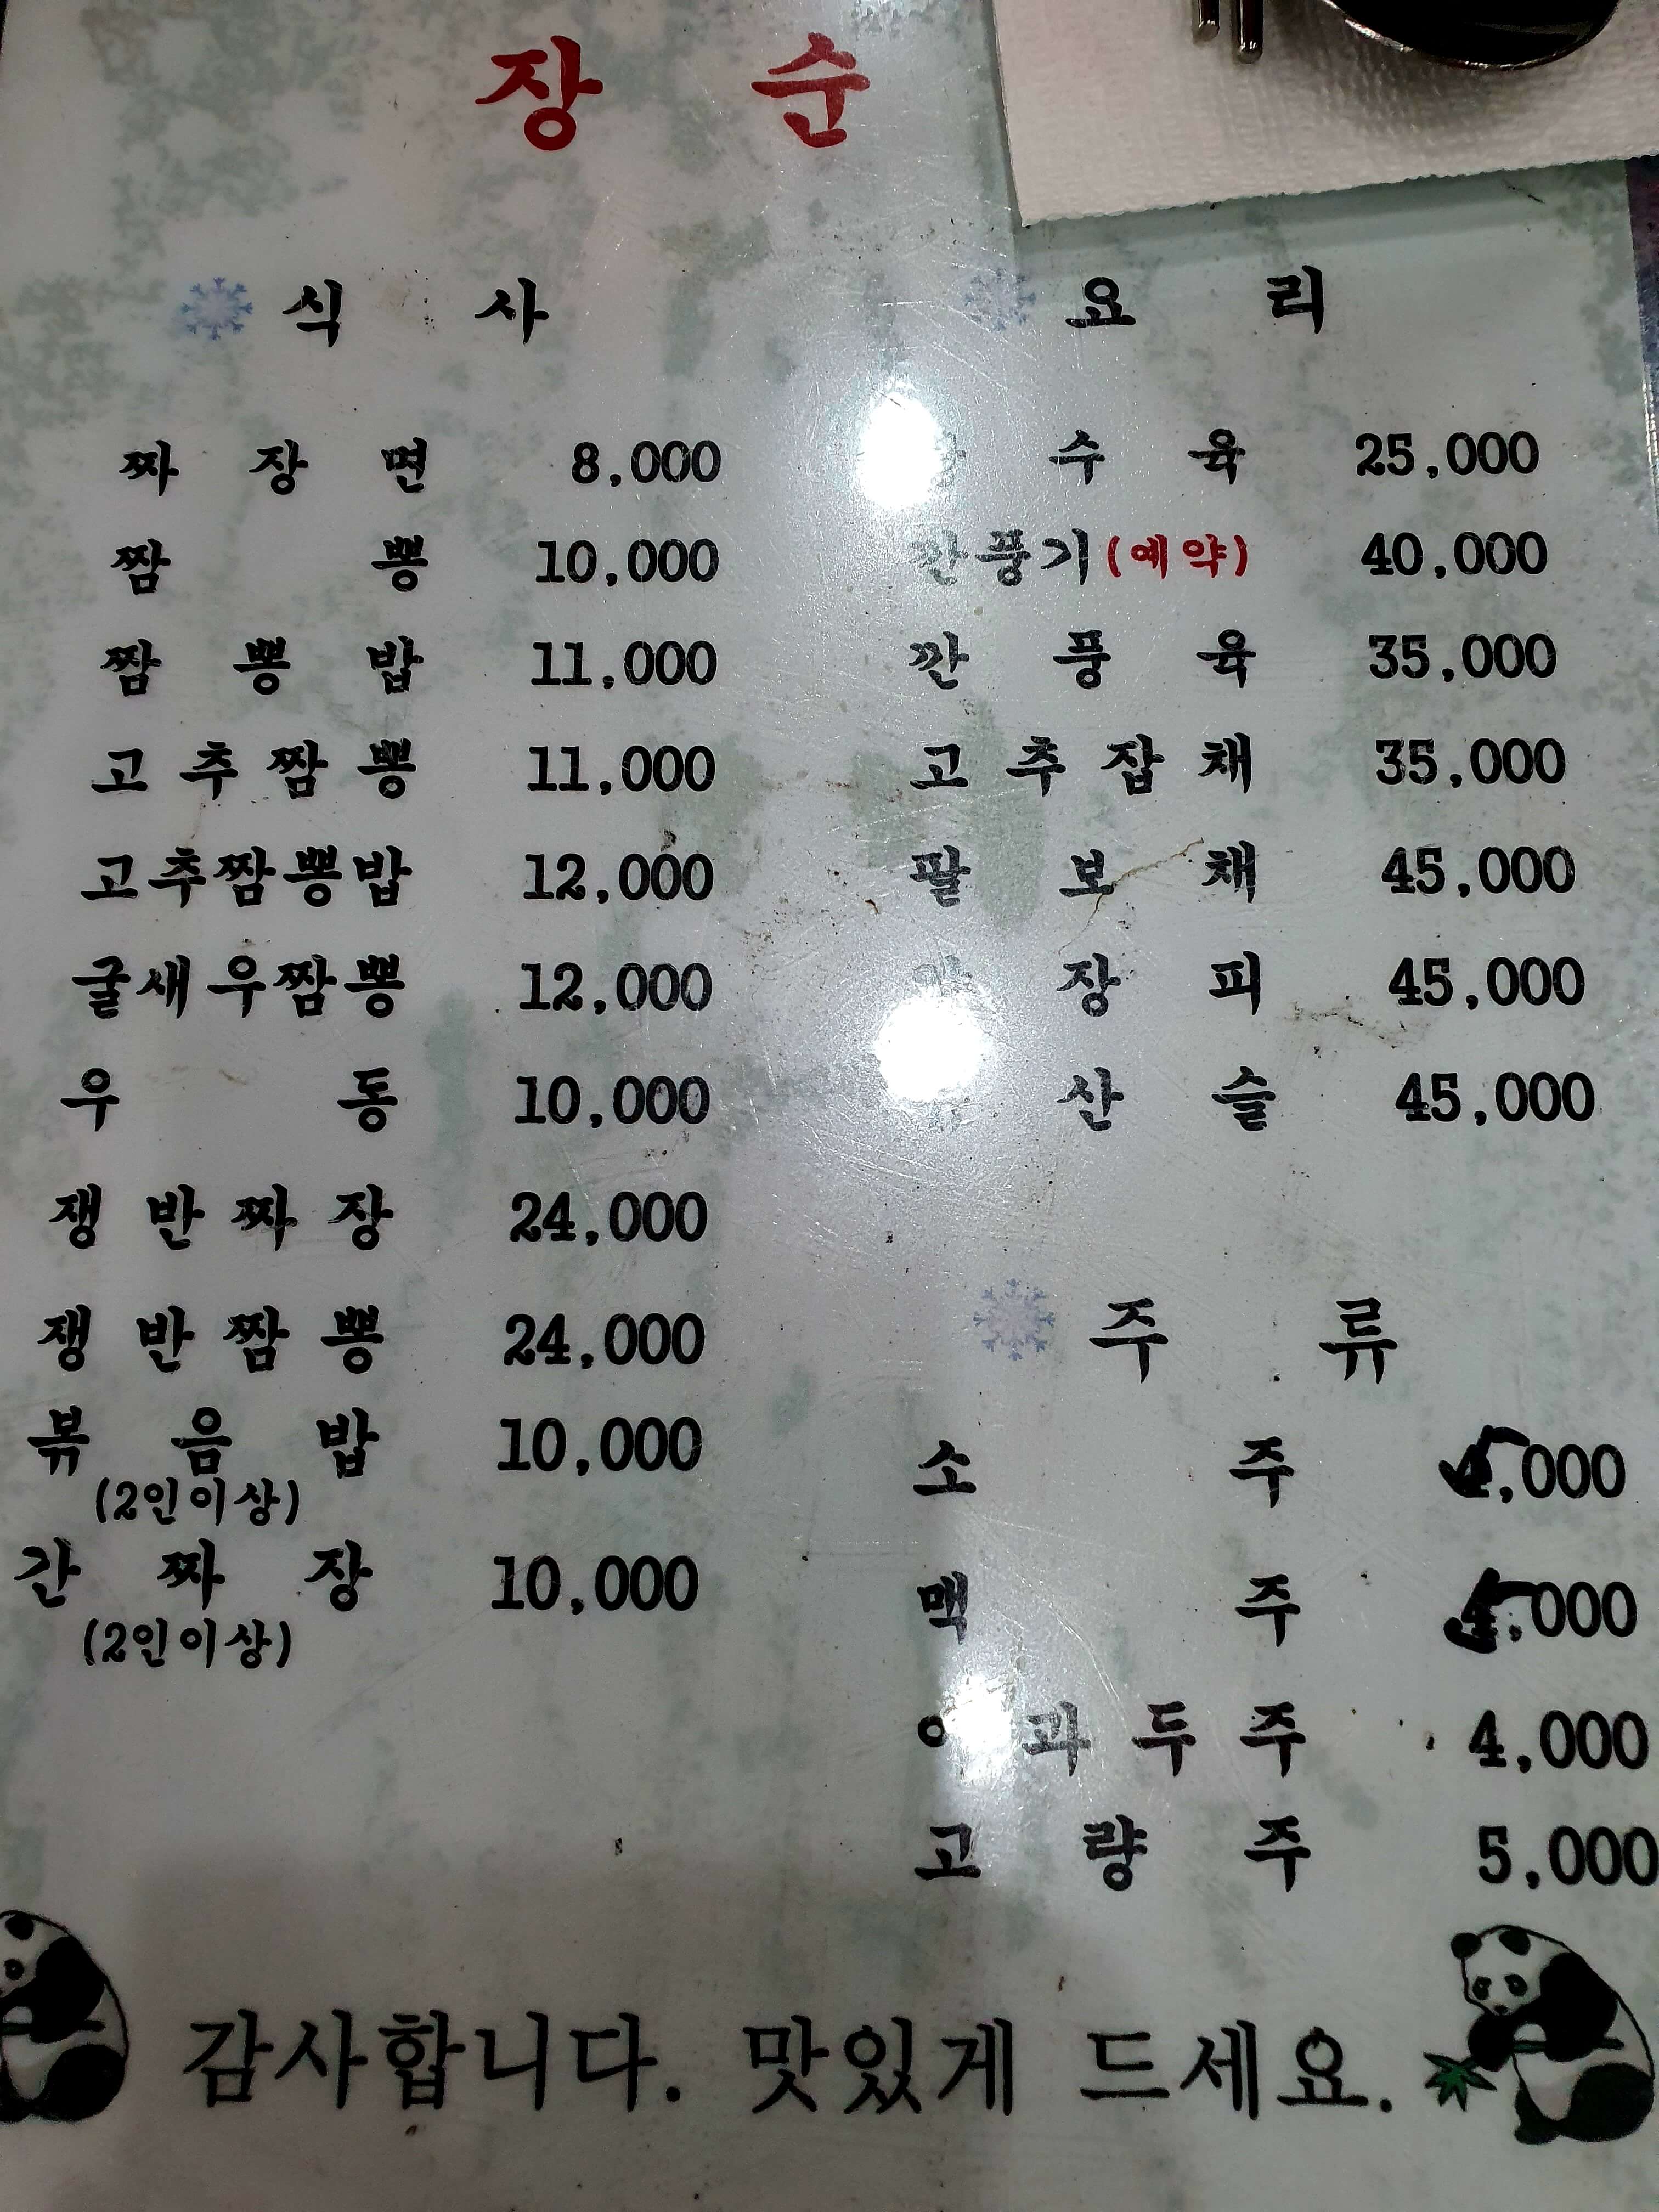 장 순
식 사
짜 장 면 8,000
짬 뽕 10,000
짬 뽕 밥 11,000
고 추 짬 뽕 11,000
고추짬뽕밥 12,000
굴새우짬뽕 12,000
우 동 10,000
쟁 반 짜 장 24,000
쟁 반 짬 뽕 24,000
볶 음 밥 10,000
(2인이상)
간 짜 장 10,000
(2인이상)
요 리
수 육 25,000
깐풍기(예약) 40,000
깐 풍 육 35,000
고 추 잡 채 35,000
팔 보 채 45,000
장 피 45,000
산 슬 45,000
주 류
소 주 5,000
맥 주 5,000
과 두 주 4,000
고 량 주 5,000
감사합니다. 맛있게 드세요.